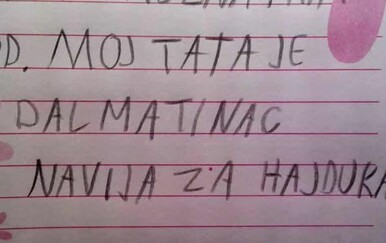 D. MOJ TATA JE
DALMATINAC
NAVIJA ZA HAJDUKA